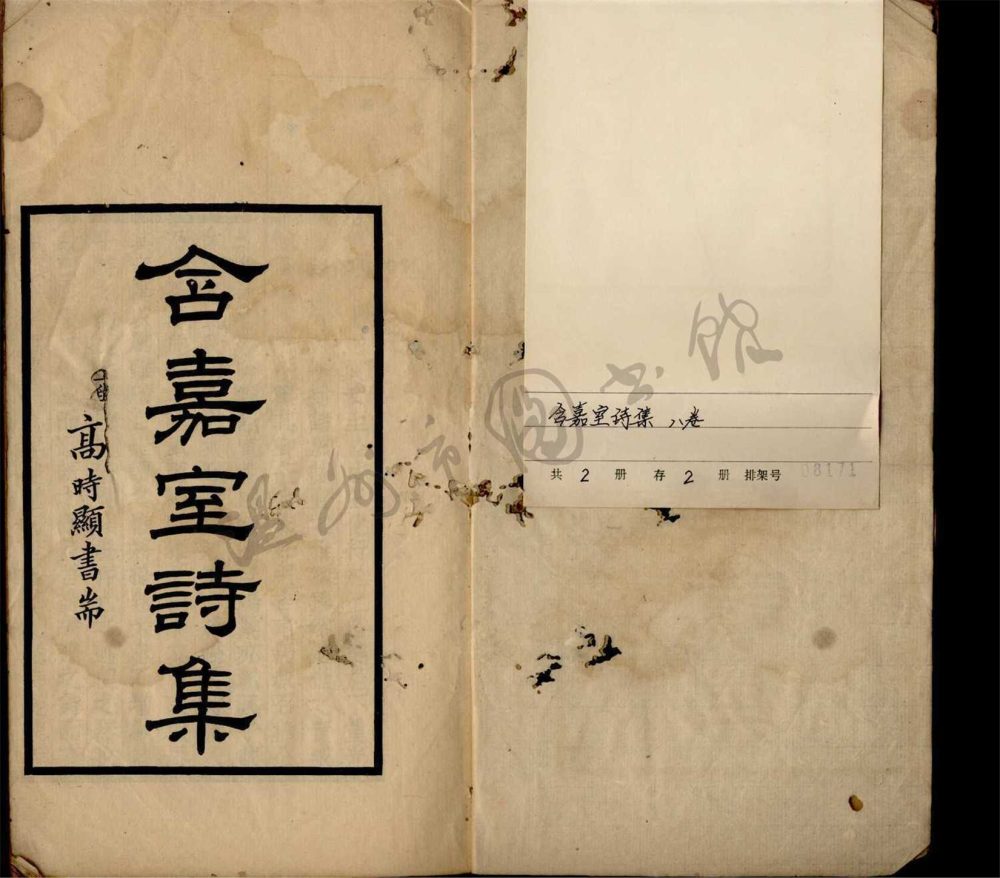 含嘉室詩集 八卷
共 2 册 存 2 册 排架号 08171
含嘉室詩集
高時顯書耑
温州市圖书馆